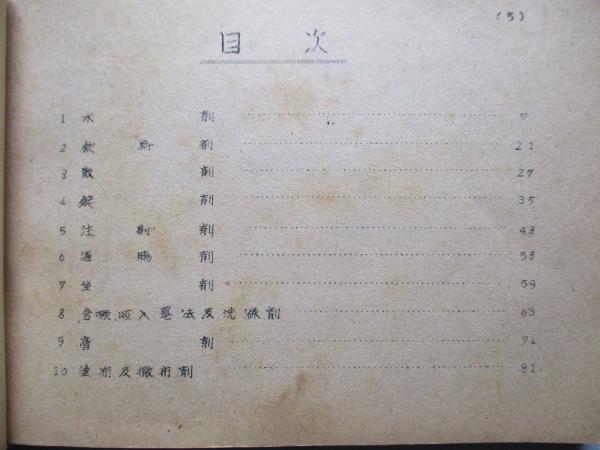 (5)
目次
1 水剤 7
2 飲料剤 21
3 散剤 27
4 錠剤 35
5 注射剤 43
6 浣腸剤 53
7 坐剤 59
8 含嗽吸入罨法及洗滌剤 63
9 膏剤 71
10 塗布及撒布剤 81